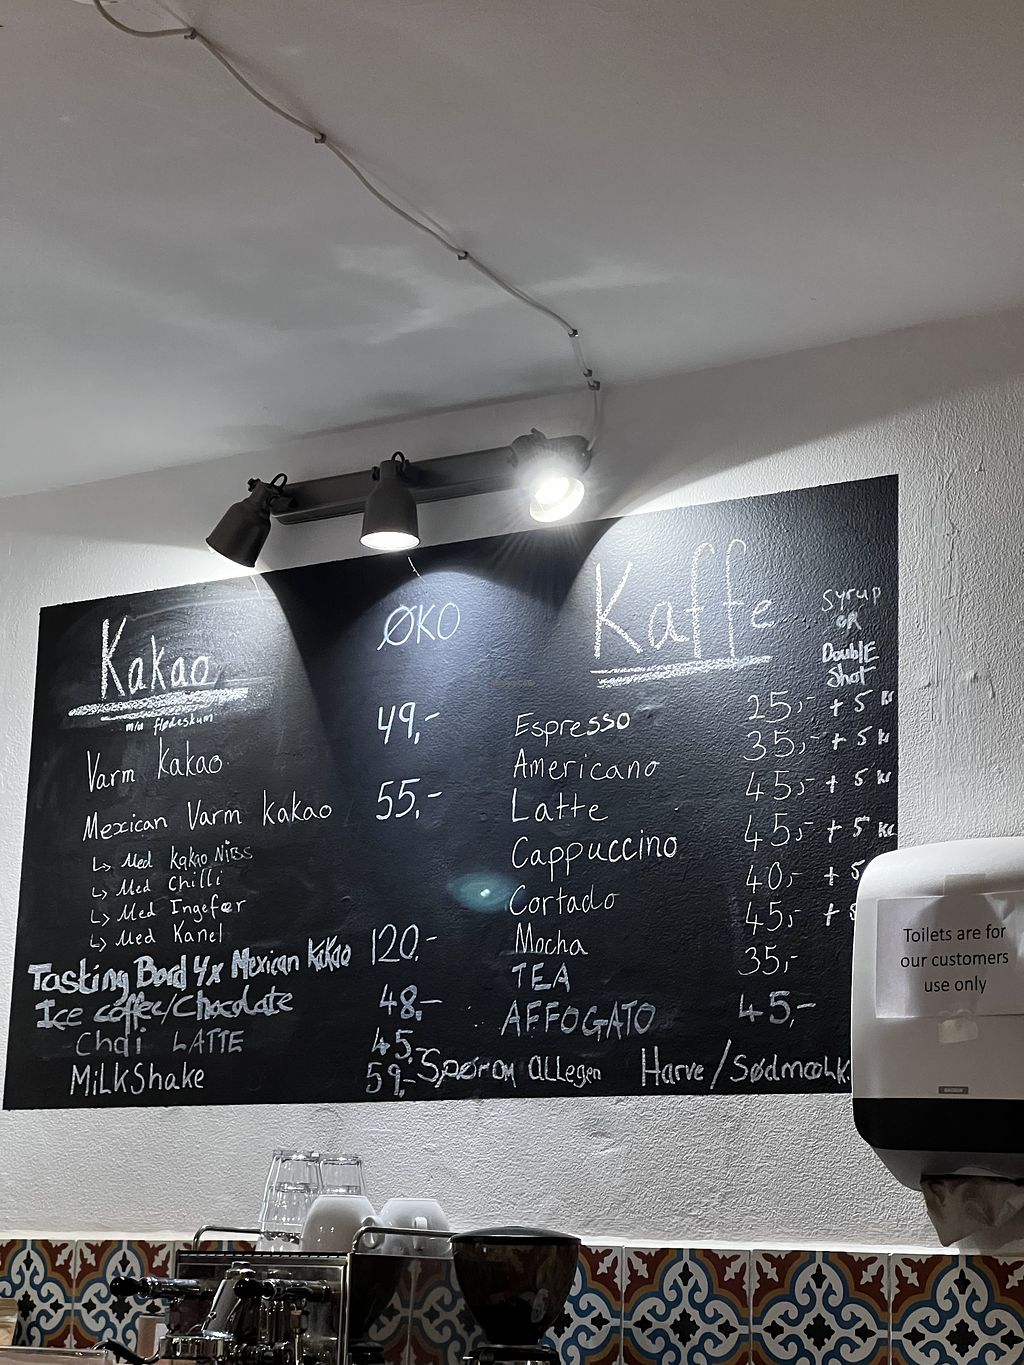 Kakao
m/u flødeskum
ØKO
Varm Kakao 49,-
Mexican Varm Kakao 55,-
↳ Med Kakao NIBS
↳ Med Chilli
↳ Med Ingefær
↳ Med Kanel
Tasting Bord 4x Mexican Kakao 120,-
Ice coffee/Chocolate 48,-
Chai LATTE 45,-
MiLkShake 59,-
Kaffe
Syrup
OR
DoublE
Shot
Espresso 25,- + 5 kr
Americano 35,- + 5 kr
Latte 45,- + 5 kr
Cappuccino 45,- + 5 kr
Cortado 40,- + 5
Mocha 45,- +
TEA 35,-
AFFOGATO 45,-
Spørom aLLegen Harve/Sødmælk
Toilets are for
our customers
use only